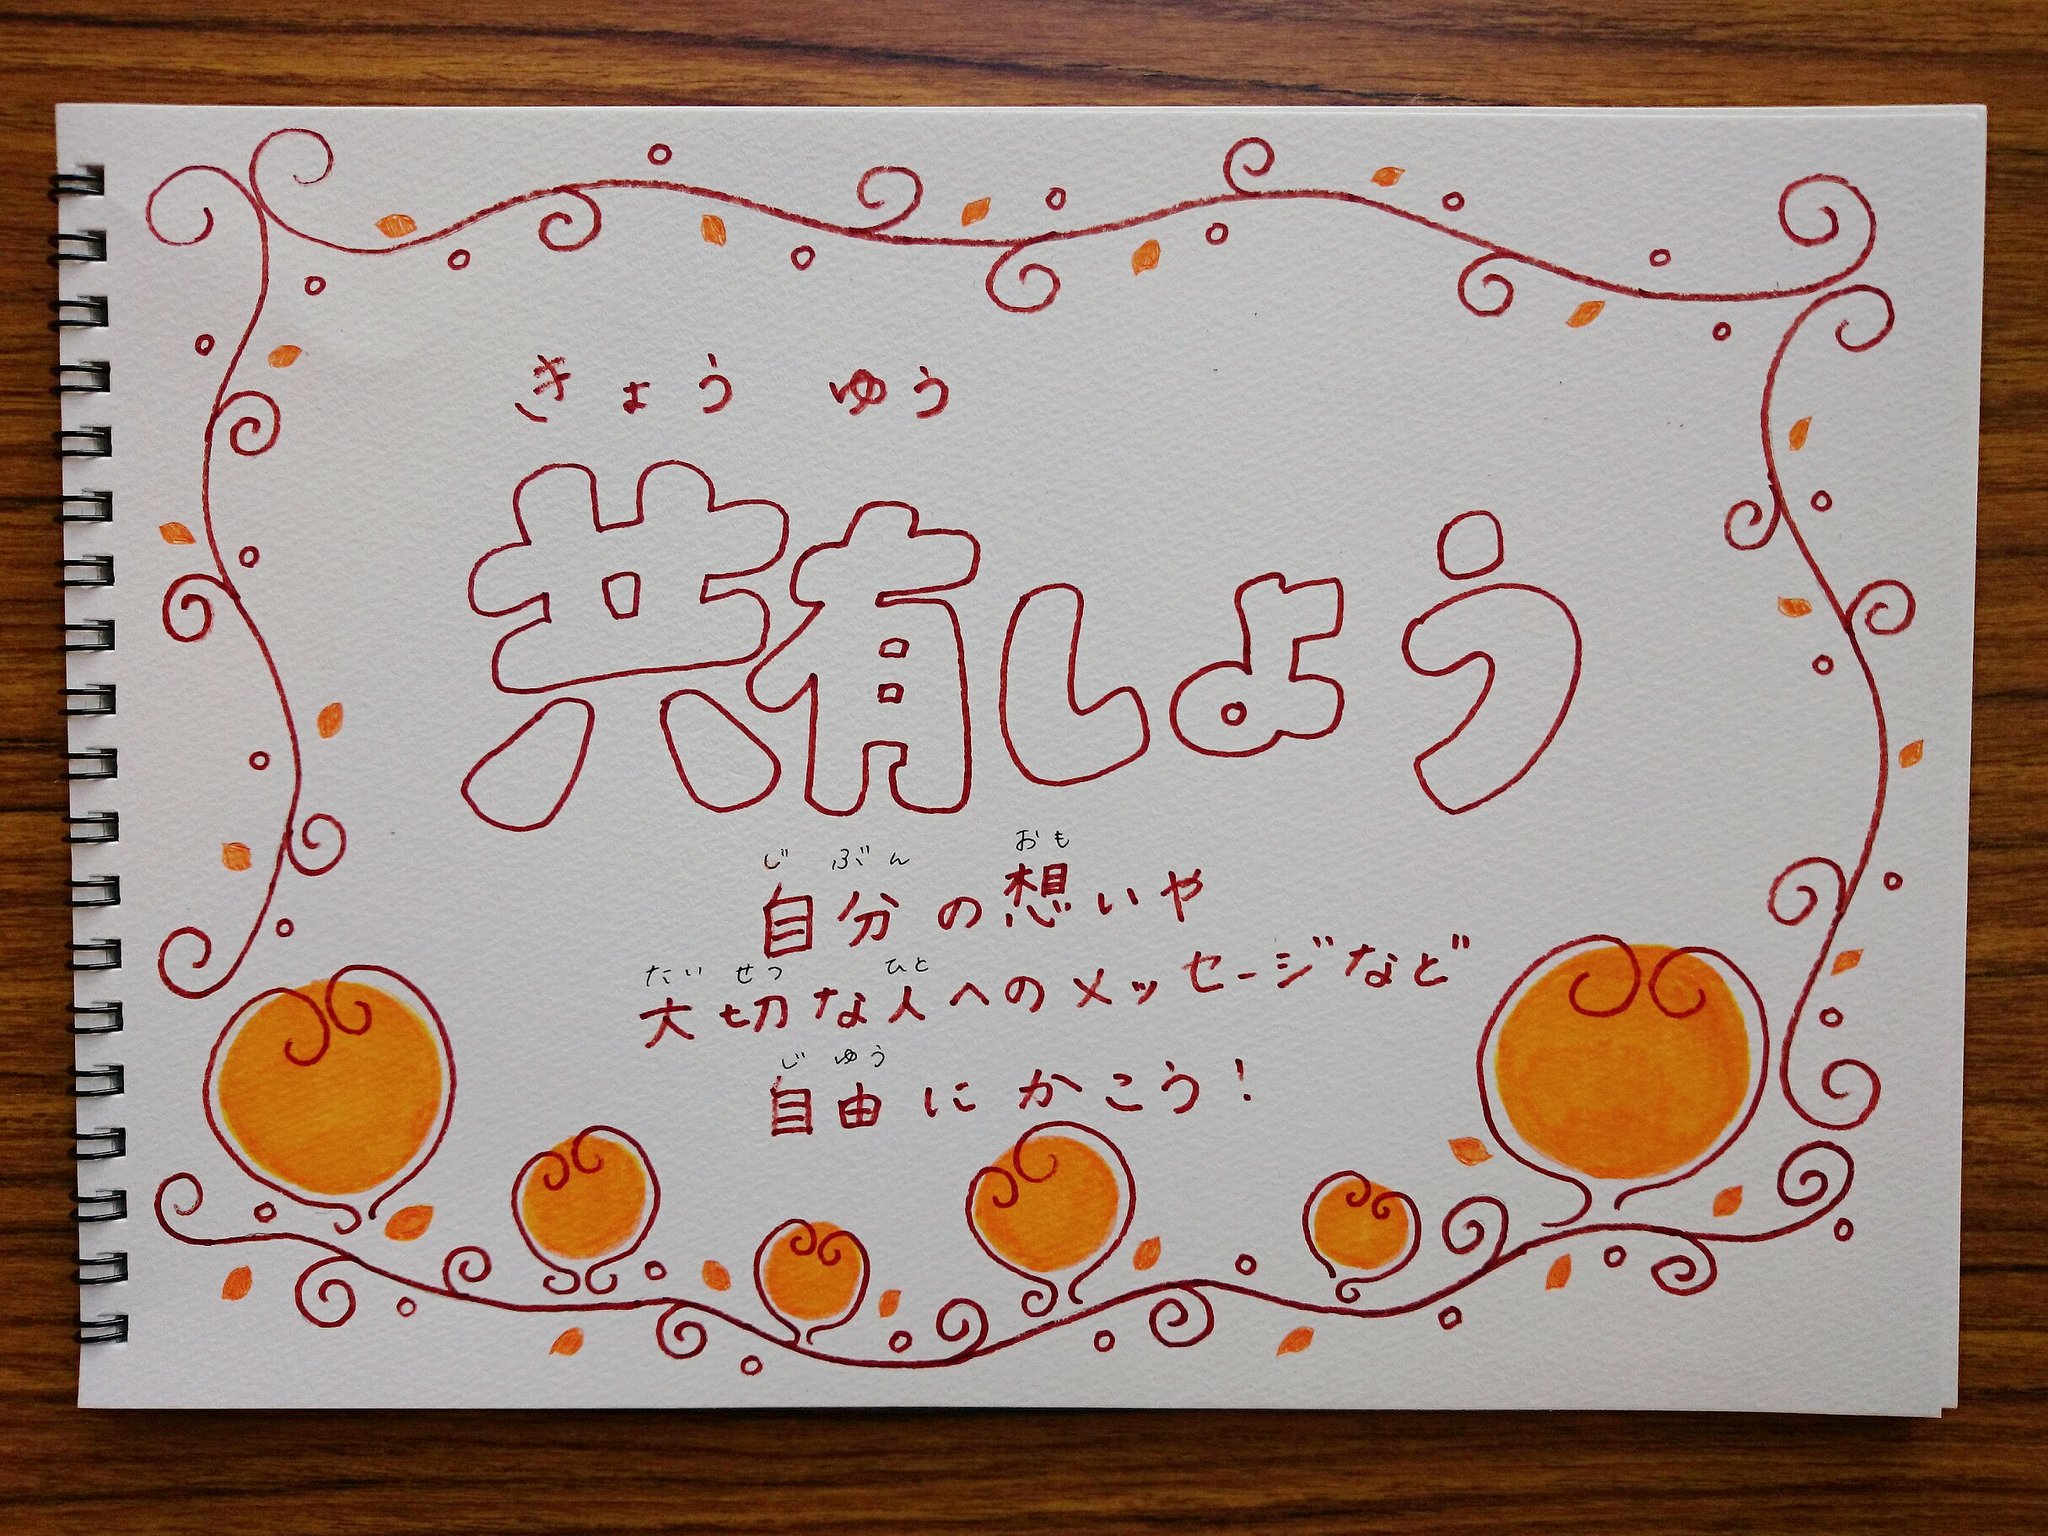 きょうゆう
共有しよう
じぶん おも
自分の想いや
たいせつ ひと
大切な人へのメッセージなど
じゆう
自由にかこう!